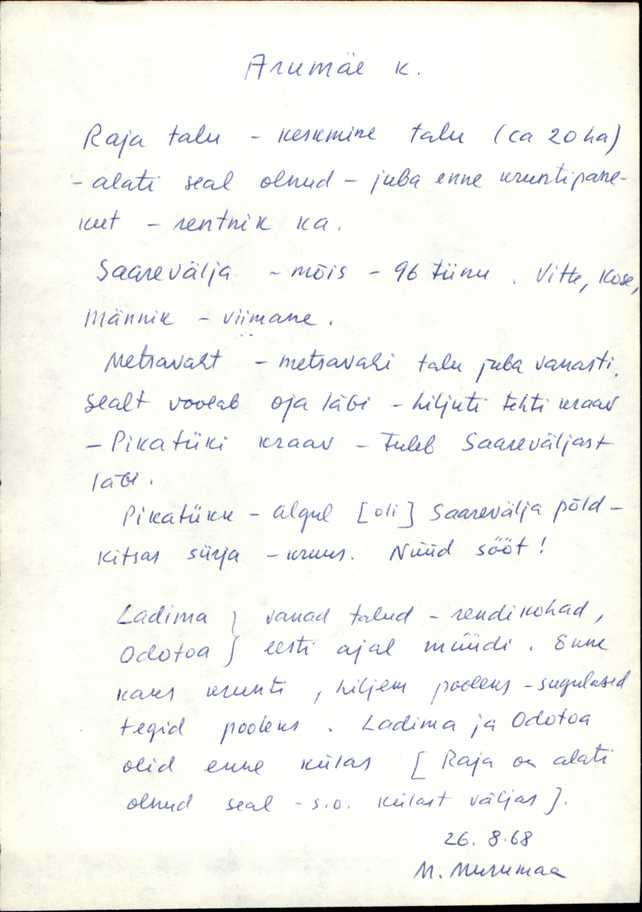 Arumäe k.
Raja talu - keskmine talu (ca 20 ha)
- alati seal olnud - juba enne kruntipane-
kut - rentnik ka.
Saarevälja - mõis - 96 tiinu. Vitte, Kose,
Männik - viimane.
Metsavaht - metsavahi talu juba vanasti.
Sealt voolab oja läbi - hiljuti tehti kraav
- Pikatüki kraav - Tuleb Saareväljast
läbi.
Pikatükk - algul [oli] Saarevälja põld -
kitsas siirja - kruus. Nüüd sööt!
Ladima } vanad talud - rendikohad,
Odotoa } eesti ajal müüdi. Enne
kaks krunti, hiljem pooleks - sugulased
tegid pooleks. Ladima ja Odotoa
olid enne külas [Raja on alati
olnud seal - s.o. külast väljas].
26. 8.68
M. Murumaa